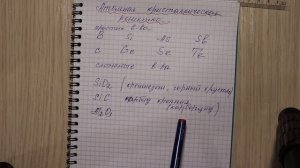 Атомная кристаллическая
решетка
простые в-ва
B Si As Sb
C Ge Se Te
сложные в-ва
SiO₂ (кремнезем, горный хрусталь)
SiC карбид кремния (карборунд)
Al₂O₃